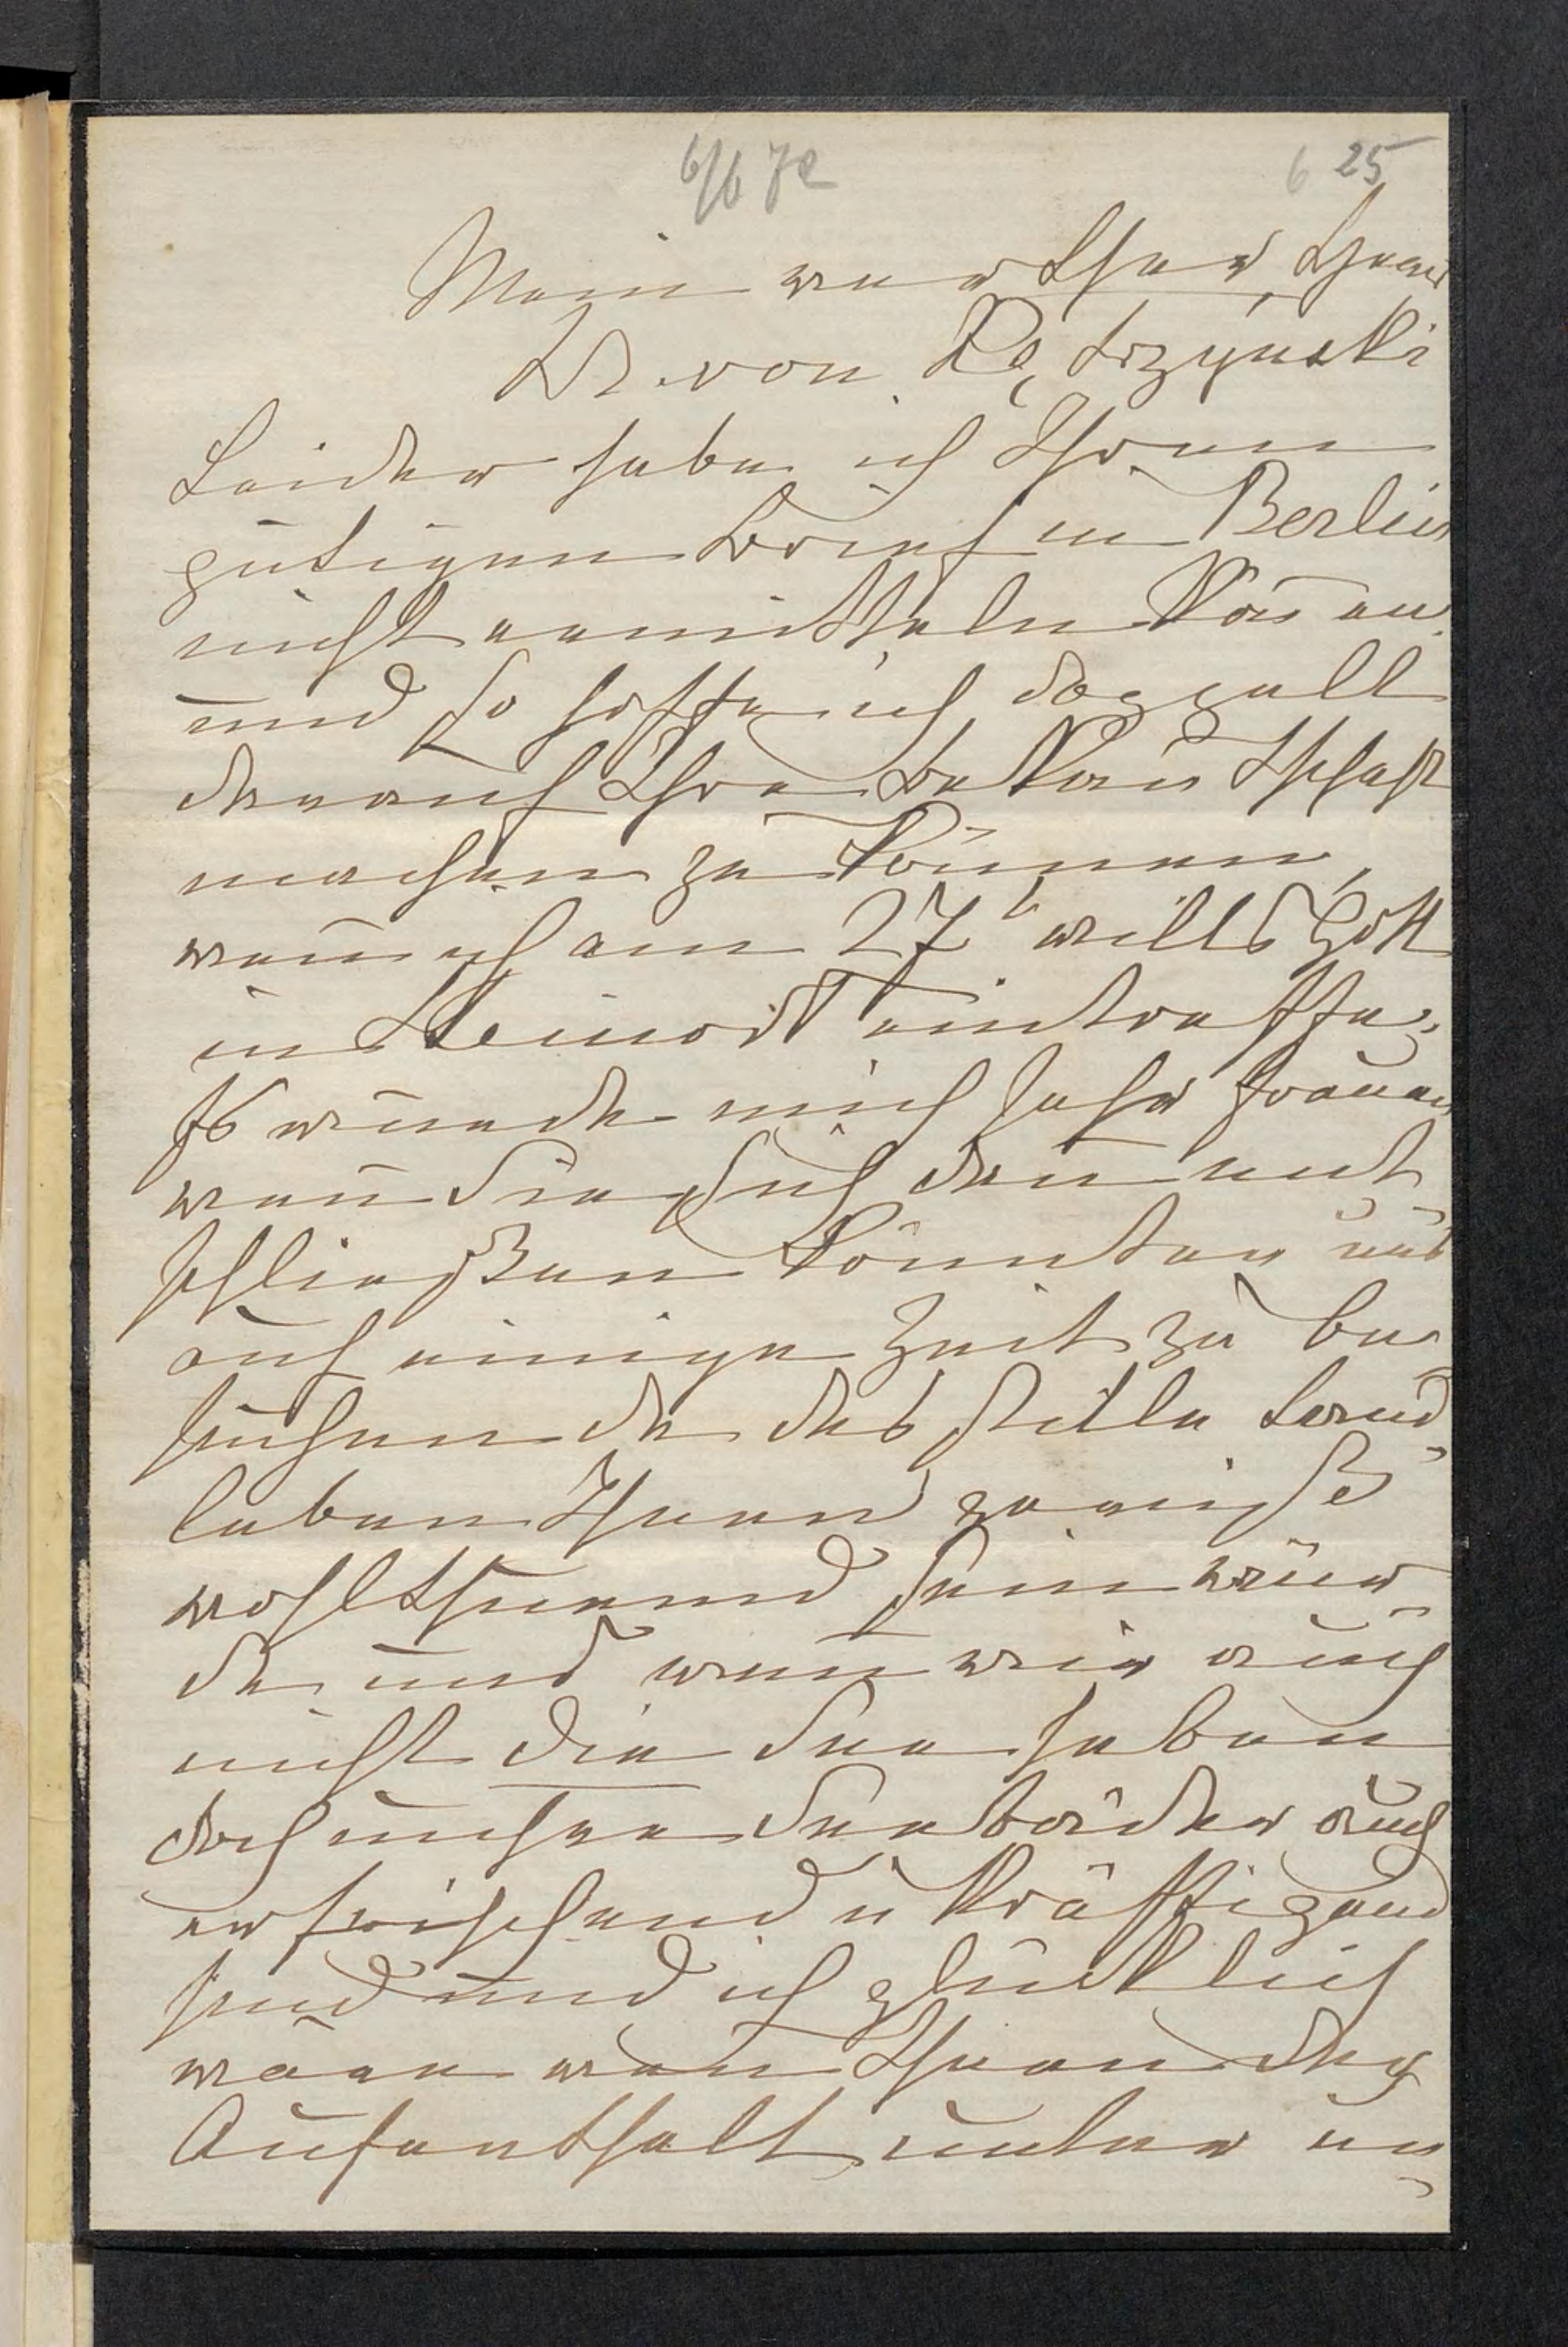 6/6 72
6 25
Mein werther Herr
Dr von Kętrzyński
Leider habe ich Ihren
gütigen Brief in Berlin
nicht ermitteln können
und so hoffe ich doppelt
darauf Ihre Bekan̄tschaft
machen zu können,
wen̄ ich am 27t wills Gott
in Steinort eintreffe;
Es würde mich sehr freuen
wen̄ Sie sich dan̄ ent
schließen könnten uns
auf einige Zeit zu be-
suchen da das stille Land-
leben Ihnen gewiß
wohlthuend sein wür-
de und wen̄ wir auch
nicht die See haben
doch unsere Seebäder auch
erfrischend u kräftigend
sind und ich glücklich
wäre wen̄ Ihnen der
Aufenthalt unter un-